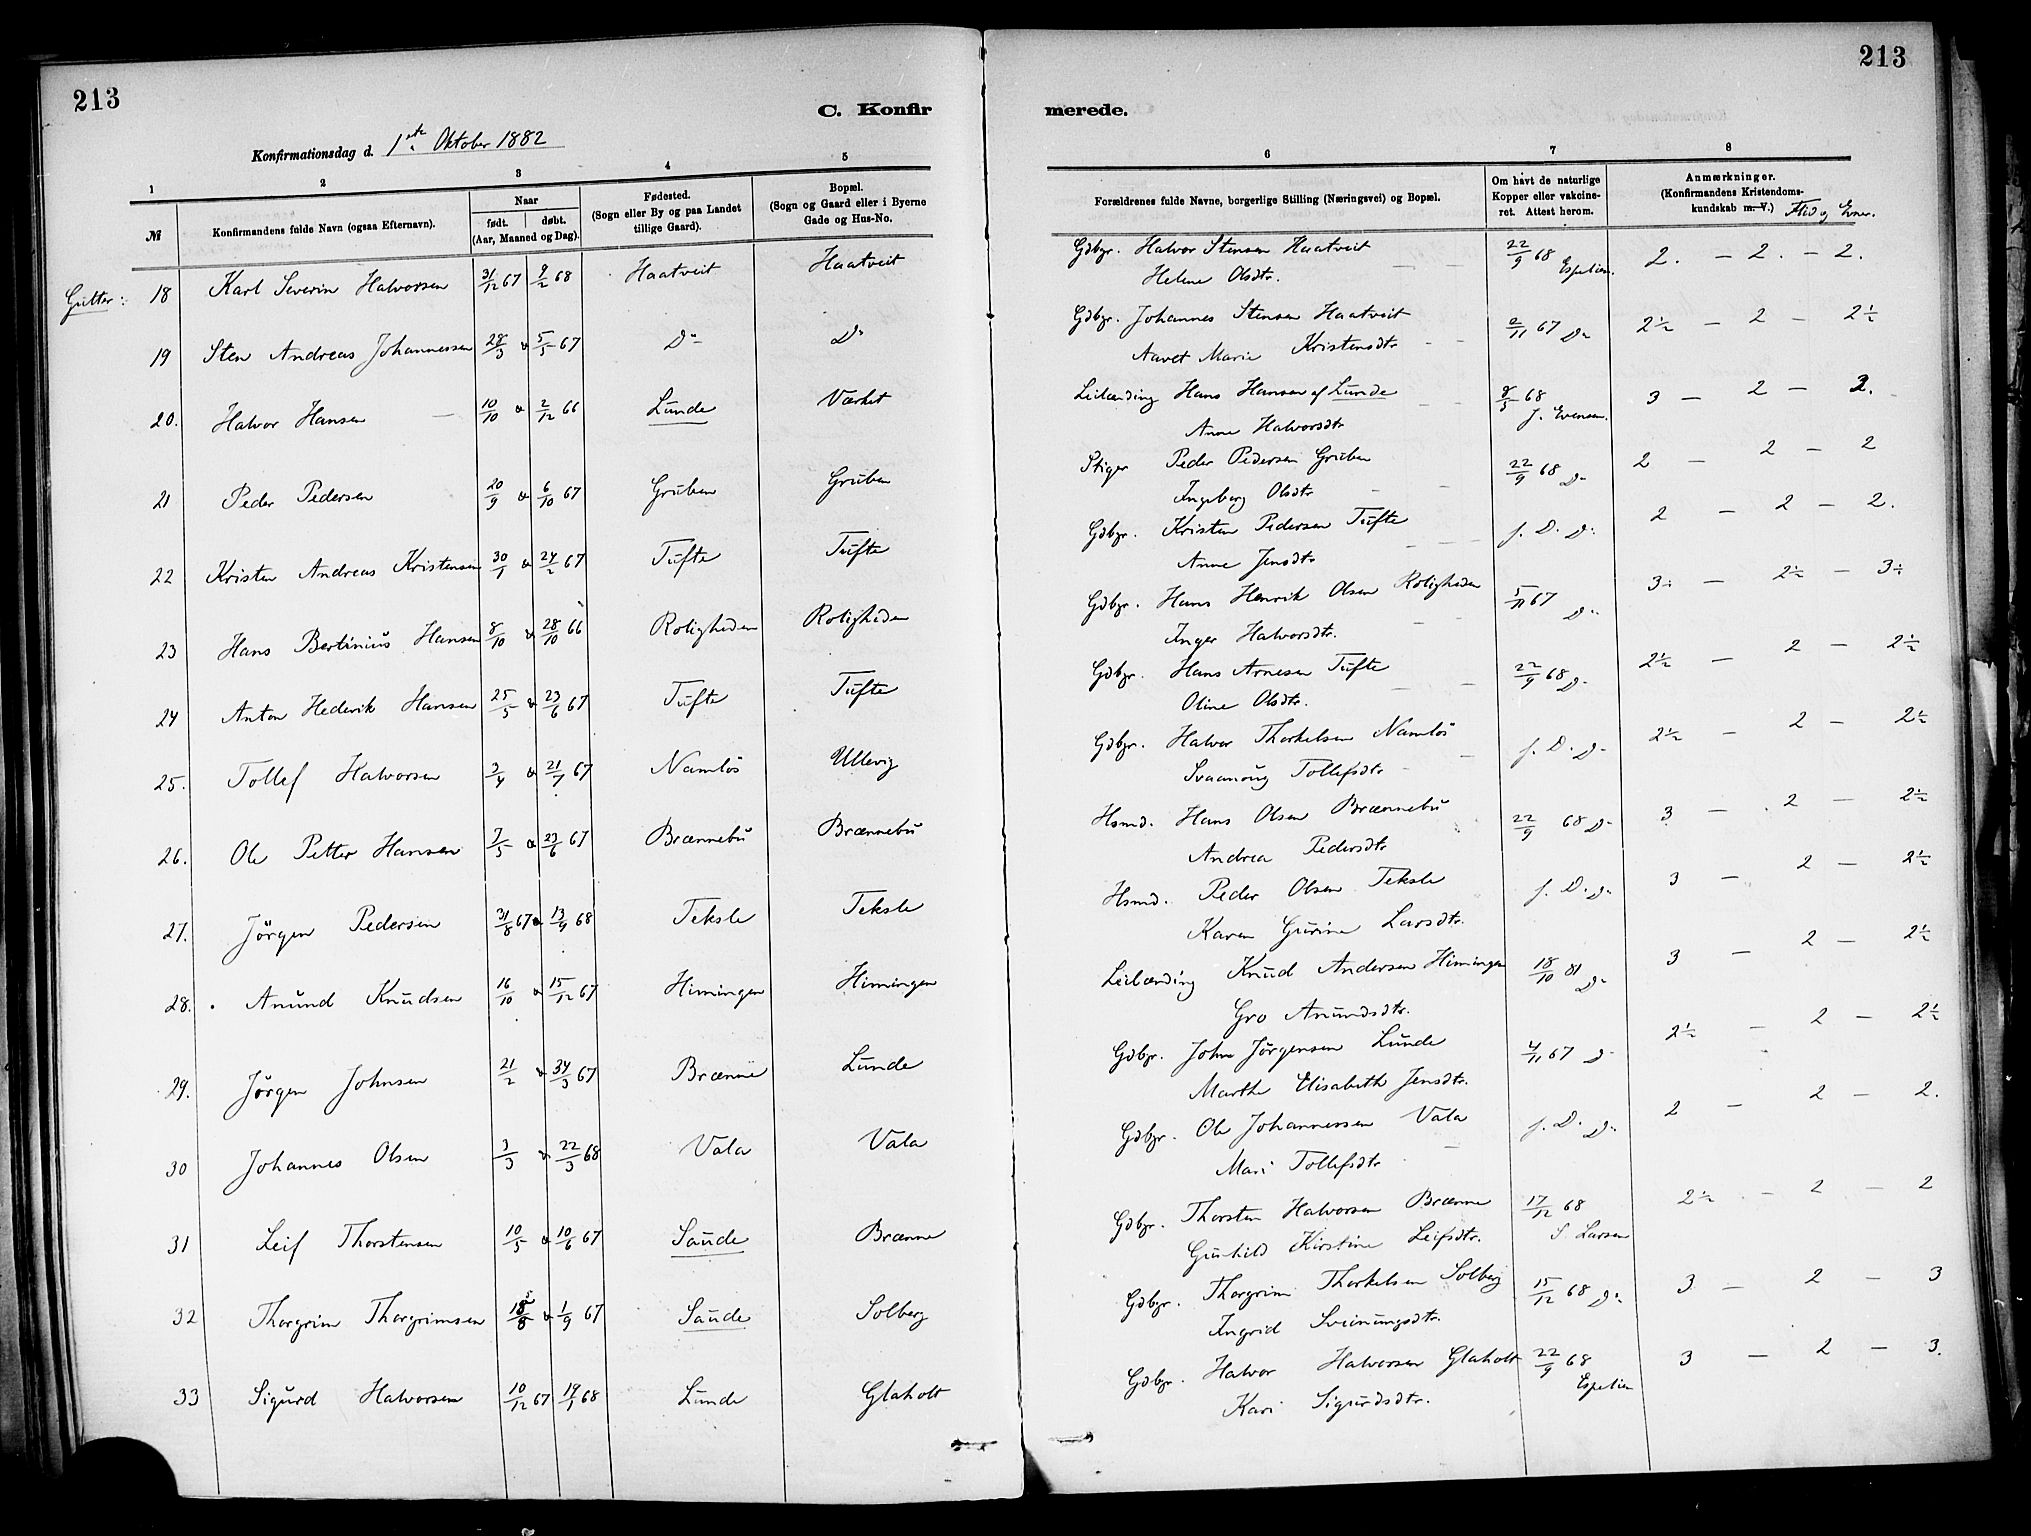 213
213
C. Konfirmerede.
Konfirmationsdag d. 1ste Oktober 1882
1 2 3 4 5 6 7 8
№ Konfirmandens fulde Navn (ogsaa Efternavn). Naar født. døbt. (Aar, Maaned og Dag). Fødested. (Sogn eller By og paa Landet tillige Gaard). Bopæl. (Sogn og Gaard eller i Byerne Gade og Hus-No. Forældrenes fulde Navne, borgerlige Stilling (Næringsvei) og Bopæl. Om havt de naturlige Kopper eller vakcineret. Attest herom. Anmærkninger. (Konfirmandens Kristendomskundskab m. V.) Flid og Evner.
Gutter: 18 Karl Severin Halvorsen 31/12 67 9/2 68 Haatveit Haatveit Gdbgr. Halvor Stensen Haatveit 22/9 68 Espelien. 2. – 2. – 2.
Helene Olsdtr.
19 Sten Andreas Johannessen 28/3 & 5/5 67 Do Do Gdbgr. Johannes Stensen Haatveit 2/11 67 Do 2½ – 2 – 2½
Aavet Marie Kristensdtr
20. Halvor Hansen 10/10 & 2/12 66 Lunde Værket Leilænding Hans Hansen af Lunde 68 J. Evensen. 3 – 2 – 2.
Anne Halvorsdtr
21 Peder Pedersen 20/9 & 6/10 67 Gruben Gruben Stiger Peder Pedersen Gruben 22/9 68 Do 2 – 2 – 2
Ingeborg Olsdtr
22 Kristen Andreas Kristensen 30/1 & 24/2 67 Tufte Tufte Gdbgr. Kristen Pedersen Tufte f. D. Do 2 – 2 – 2.
Anne Jensdtr
23 Hans Bertinius Hansen 8/10 & 28/10 66 Roligheden Roligheden Gdbgr. Hans Henrik Olsen Roligheden 5/11 67 Do 3÷ – 2½ – 3÷
Inger Halvorsdtr.
24 Anton Hederik Hansen 25/5 & 23/6 67 Tufte Tufte Gdbgr. Hans Arnesen Tufte 22/9 68 Do 2½ – 2 – 2½
Oline Olsdtr.
25. Tollef Halvorsen 3/4 & 21/7 67 Namløs Ullevig Gdbgr. Halvor Thorkelsen Namløs f. D. Do 2½ – 2 – 2½
Svaanoug Tollefsdtr
26. Ole Petter Hansen 7/5 & 23/6 67 Brænnebu Brænnebu Hsmd. Hans Olsen Brænnebu 22/9 68 Do 3 – 2 – 2½
Andrea Pedersdtr
27. Jörgen Pedersen 31/8 67 & 13/9 68 Teksle Teksle Hsmd. Peder Olsen Teksle f. D. Do 3 – 2 – 2½
Karen Gurine Larsdtr.
28. Anund Knudsen 16/10 & 15/12 67 Himingen Himingen Leilænding Knud Andersen Himingen 18/10 81 Do 3 – 2 – 2½
Gro Anundsdtr.
29. Jörgen Johnsen 21/2 & 67 Brænne Lunde Gdbgr. John Jörgensen Lunde 4/11 67 Do 2½ – 2 – 2½
Marthe Elisabeth Jensdtr.
30 Johannes Olsen 3/3 & 22/3 68 Vala Vala Gdbgr. Ole Johannessen Vala f. D. Do 2 – 2 – 2.
Mari Tollefsdtr
31 Leif Thorstensen 10/5 & 10/6 67 Saude Brænne Gdbgr. Thorsten Halvorsen Brænne 17/12 68 S Larsen 2½ – 2 – 2
Gunhild Kirstine Leifsdtr.
32 Thorgrim Thorgrimsen & 1/9 67 Saude Solberg Gdbgr. Thorgrim Thorkelsen Solberg 15/12 68 Do 3 – 2 – 3
Ingrid Sveinungsdtr.
33 Sigurd Halvorsen 10/12 67 19/1 68 Lunde Glaholt Gdbgr. Halvor Halvorsen Glaholt 22/9 68 Espelien 3 – 2 – 3.
Kari Sigurdsdtr.